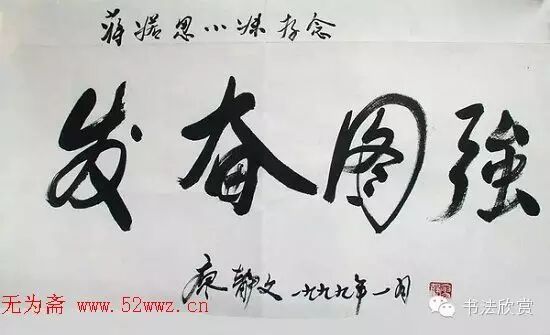 蒋思小妹存念
发奋图強
廖静文 一九九九年一月
无为斋 www.52wwz.cn
书法欣赏